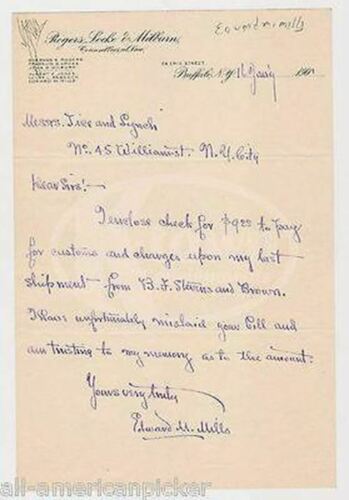 Edward M Mills
Rogers, Locke & Milburn,
Counsellors at Law,
SHERMAN S. ROGERS
FRANKLIN D. LOCKE
JOHN G. MILBURN
LOUIS L. BABCOCK
EDWARD M. MILLS
28 ERIE STREET
Buffalo, N.Y. 16 Jany 190
Messrs. Tice and Lynch
No. 45 William st. N.Y. City
Dear Sirs:-
I enclose check for $9 to pay
for customs and charges upon my last
shipment from B. F. Stevens and Brown.
I have unfortunately mislaid your bill and
am trusting to my memory as to the amount.
Yours very truly
Edward M. Mills
all-americanpicker